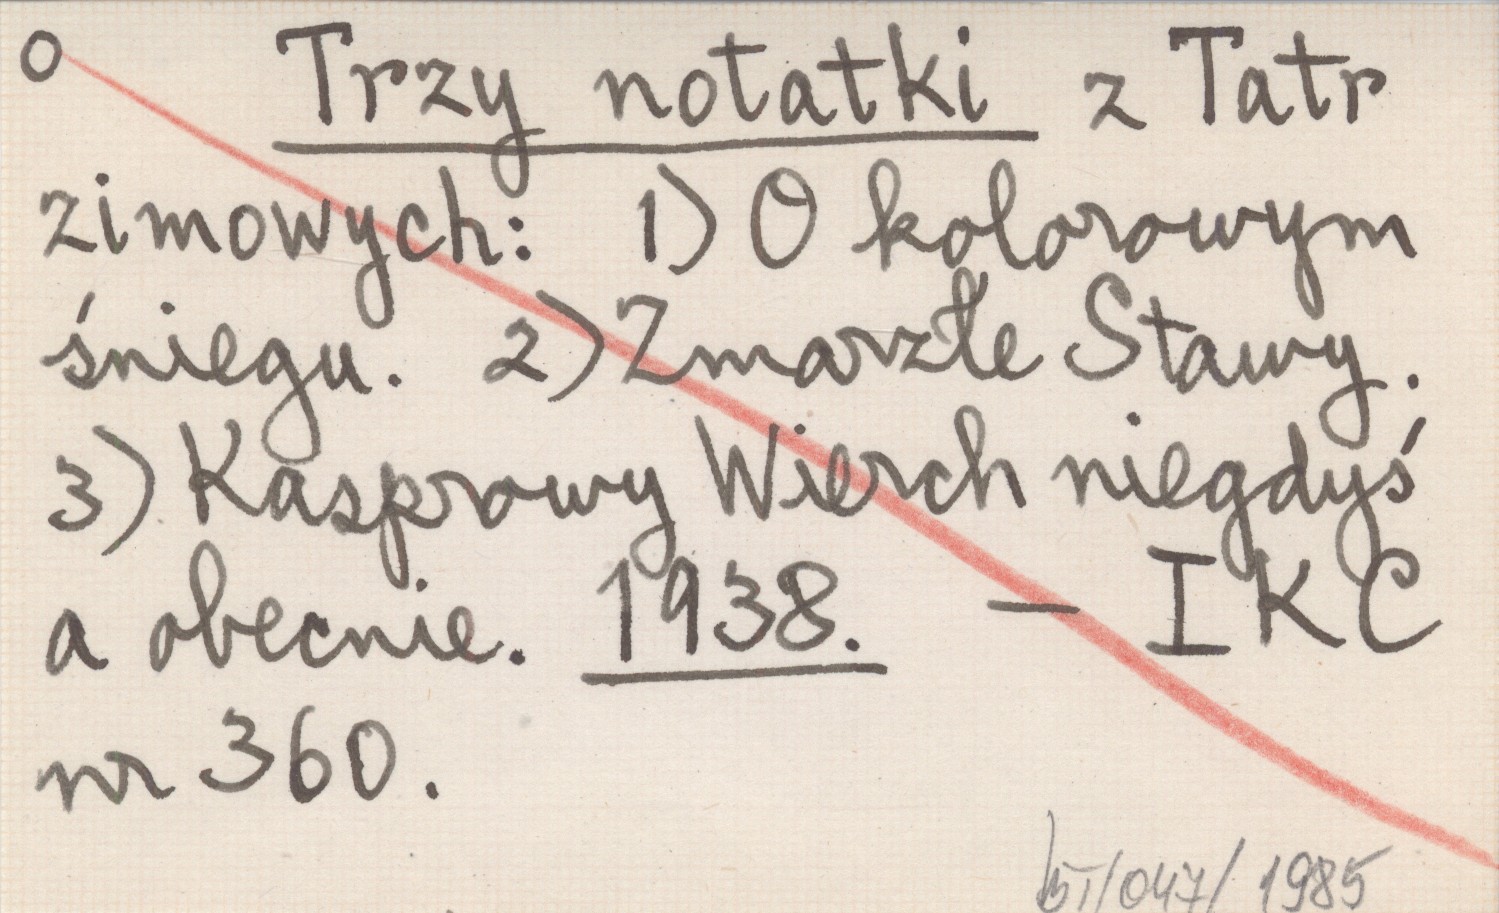 O Trzy notatki z Tatr
zimowych: 1) O kolorowym
śniegu. 2) Zmarzłe Stawy.
3) Kasprowy Wierch niegdyś
a obecnie. 1938. – IKC
nr 360.
/047/ 1985